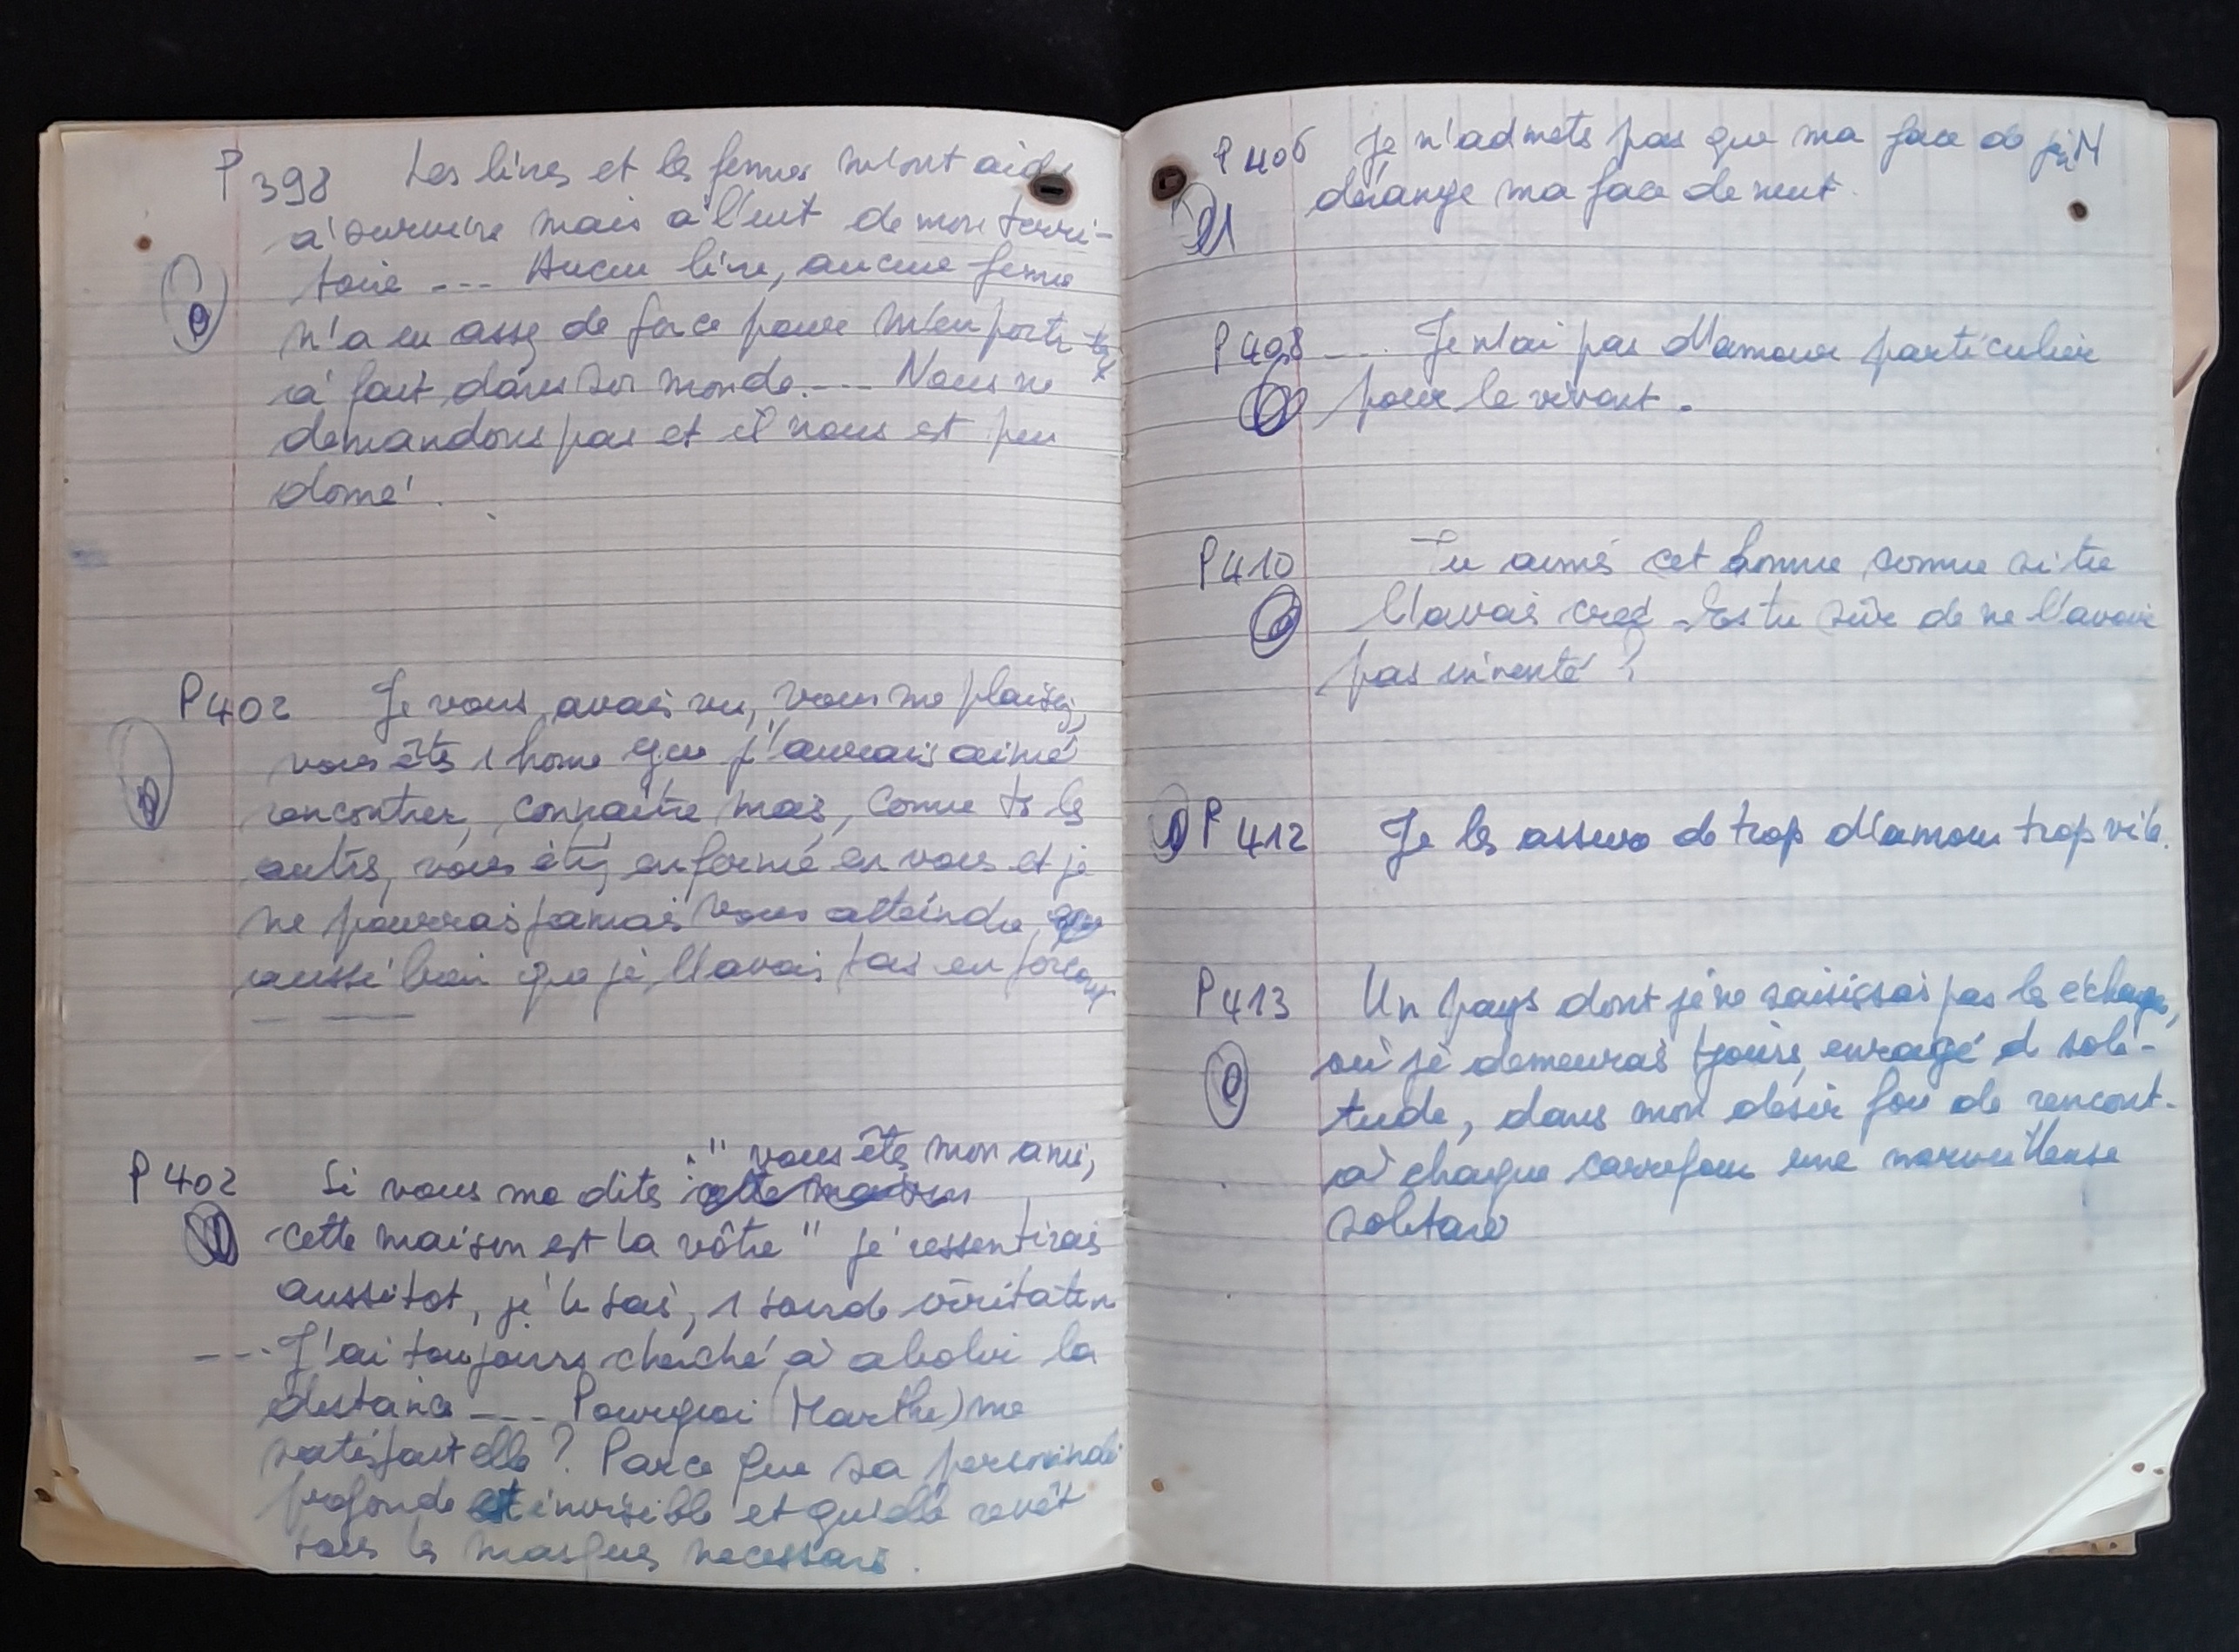 P 398 Les livres et les femmes m'ont aidé
à survivre mais à l'ent de mon terri-
toire --- Aucun livre, aucune femme
n'a eu assez de force pour m'emporter
à fait dans son monde. --- Nous ne
demandons pas et il nous est peu
donné.
P402 Je vous avais vu, vous me plaisez,
vous êtes 1 home que j'aurais aimé
rencontrer, connaître mais, comme ts les
autres, vous êtes enfermé en vous et je
ne pourrais jamais vous atteindre,
aussi bien que je l'avais fais en
P 402 Si vous me dites : " vous êtes mon ami,
cette maison est la vôtre " je ressentirais
aussitot, je le sais, 1 sourde
--- J'ai toujours cherché à abolir la
distance --- Pourquoi (Marthe) me
satisfait elle ? Parce que sa
profonde est invisible et qu'elle revêt
tous les masques necessaires.
P 406 Je n'admets pas que ma face de
dérange ma face de nuit.
P 408 --- Je n'ai pas d'amour particulier
pour le vivant.
P410 Tu aimes cet homme comme si tu
l'avais créé - Es tu sûr de ne l'avoir
pas inventé ?
P 412 Je les assure de trop d'amour trop vite.
P 413 Un pays dont je ne saisissais pas les échanges,
où je demeurais tjours, enragé d soli-
tude, dans mon désir fou de rencont.
à chaque carrefour une merveilleuse
solitaire